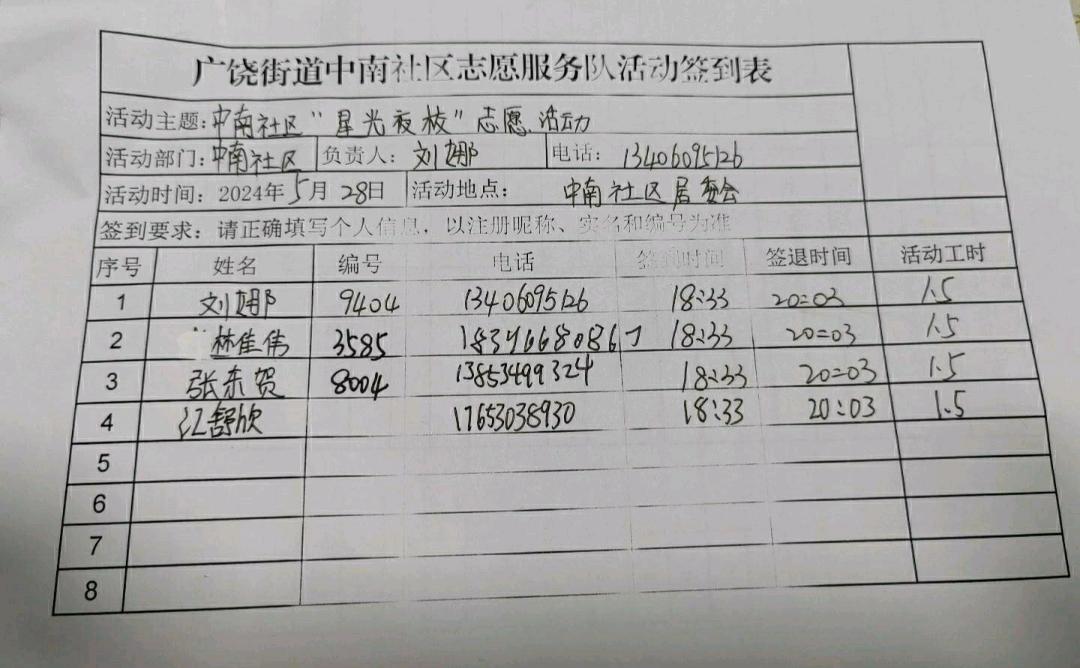 广饶街道中南社区志愿服务队活动签到表
活动主题：中南社区“星光夜校”志愿活动
活动部门：中南社区 负责人：刘娜 电话：13406095126
活动时间：2024年5月28日 活动地点：中南社区居委会
签到要求：请正确填写个人信息，以注册昵称、实名和编号为准
序号 姓名 编号 电话 签到时间 签退时间 活动工时
1 刘娜 9404 13406095126 18:33 20:03 1.5
2 林佳伟 3585 18:33 20:03 1.5
3 张东贺 8004 13853499324 18:33 20:03 1.5
4 江舒欣 17653038930 18:33 20:03 1.5
5
6
7
8